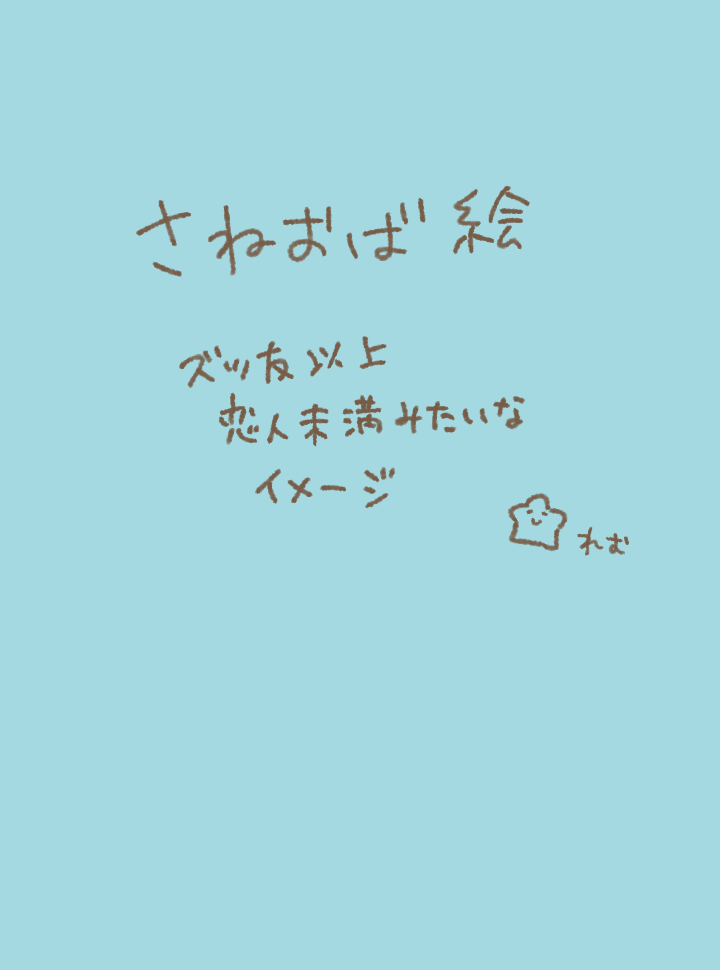 さねおば絵
ズッ友以上
恋人未満みたいな
イメージ
れお